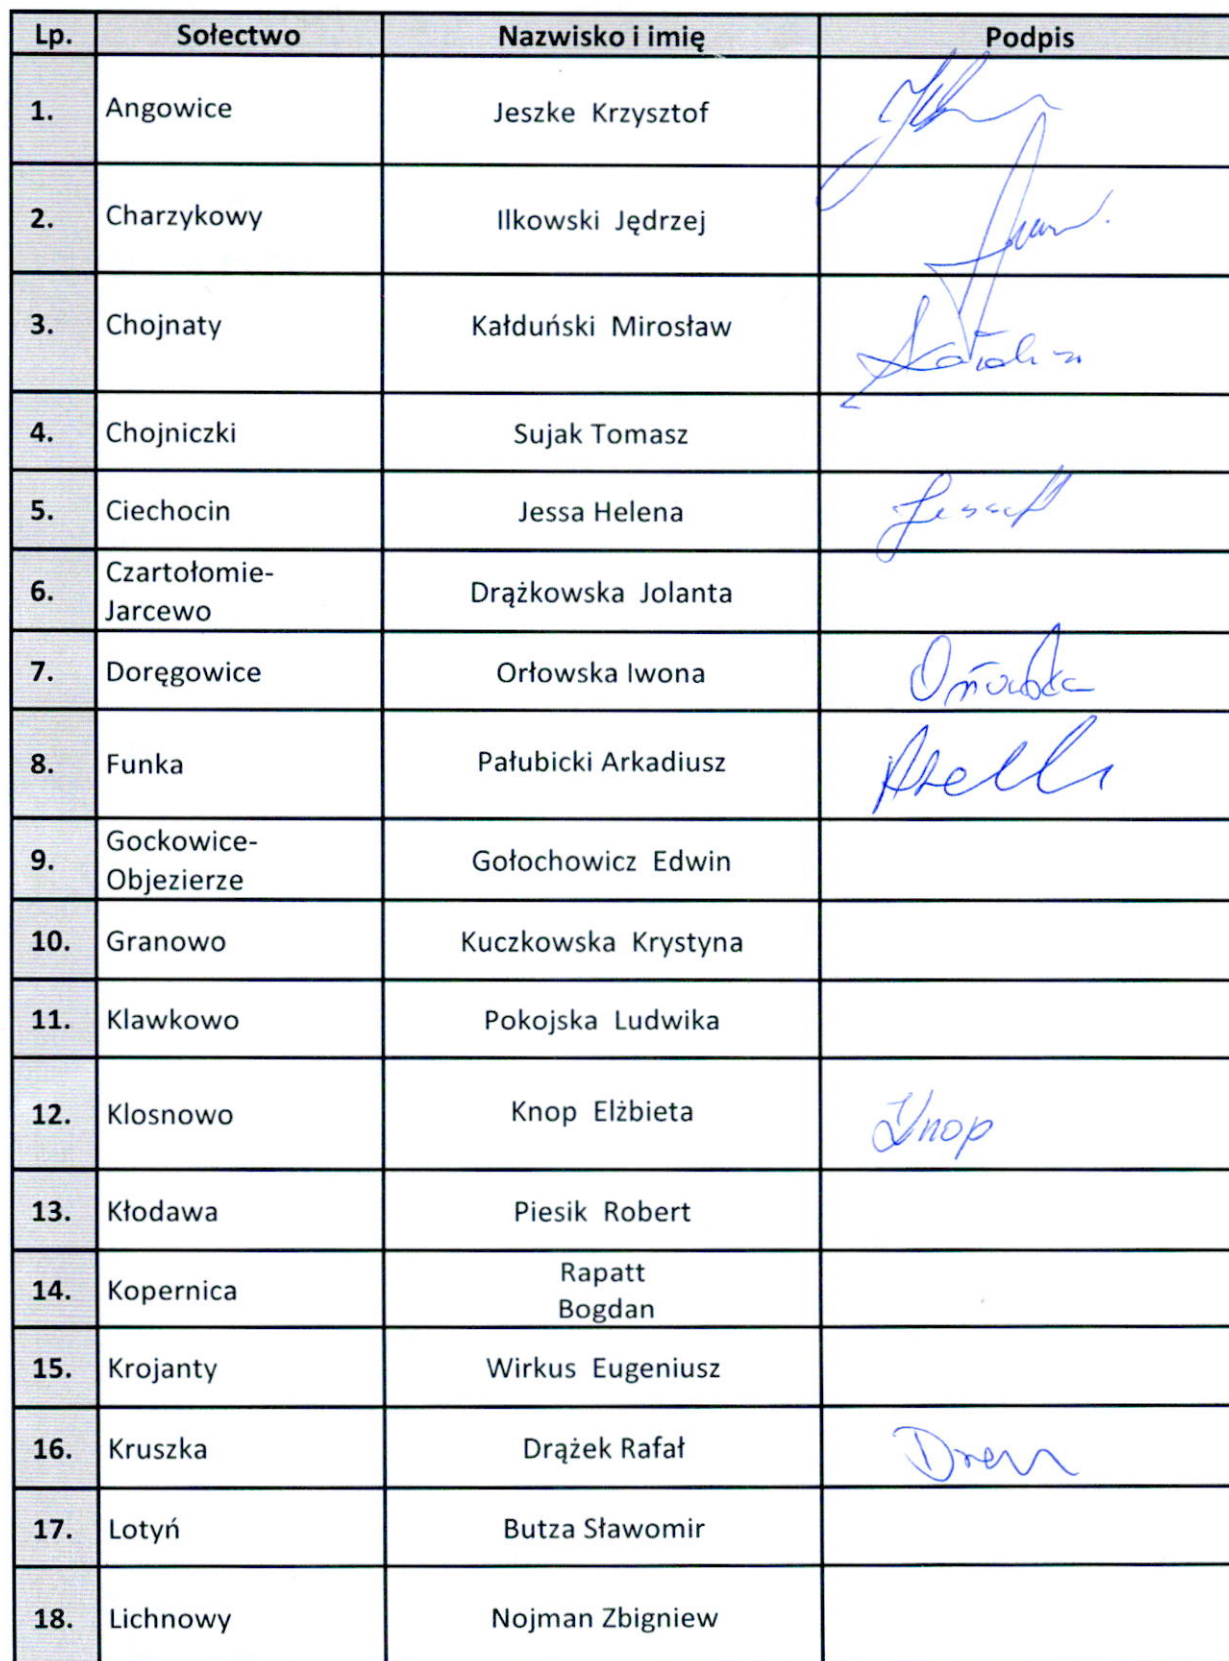 Lp. Sołectwo Nazwisko i imię Podpis
1. Angowice Jeszke Krzysztof
2. Charzykowy Ilkowski Jędrzej
3. Chojnaty Kałduński Mirosław
4. Chojniczki Sujak Tomasz
5. Ciechocin Jessa Helena Jessa H
6. Czartołomie-
Jarcewo Drążkowska Jolanta
7. Doręgowice Orłowska Iwona Orłowska
8. Funka Pałubicki Arkadiusz
9. Gockowice-
Objezierze Gołochowicz Edwin
10. Granowo Kuczkowska Krystyna
11. Klawkowo Pokojska Ludwika
12. Klosnowo Knop Elżbieta Knop
13. Kłodawa Piesik Robert
14. Kopernica Rapatt
Bogdan
15. Krojanty Wirkus Eugeniusz
16. Kruszka Drążek Rafał
17. Lotyń Butza Sławomir
18. Lichnowy Nojman Zbigniew